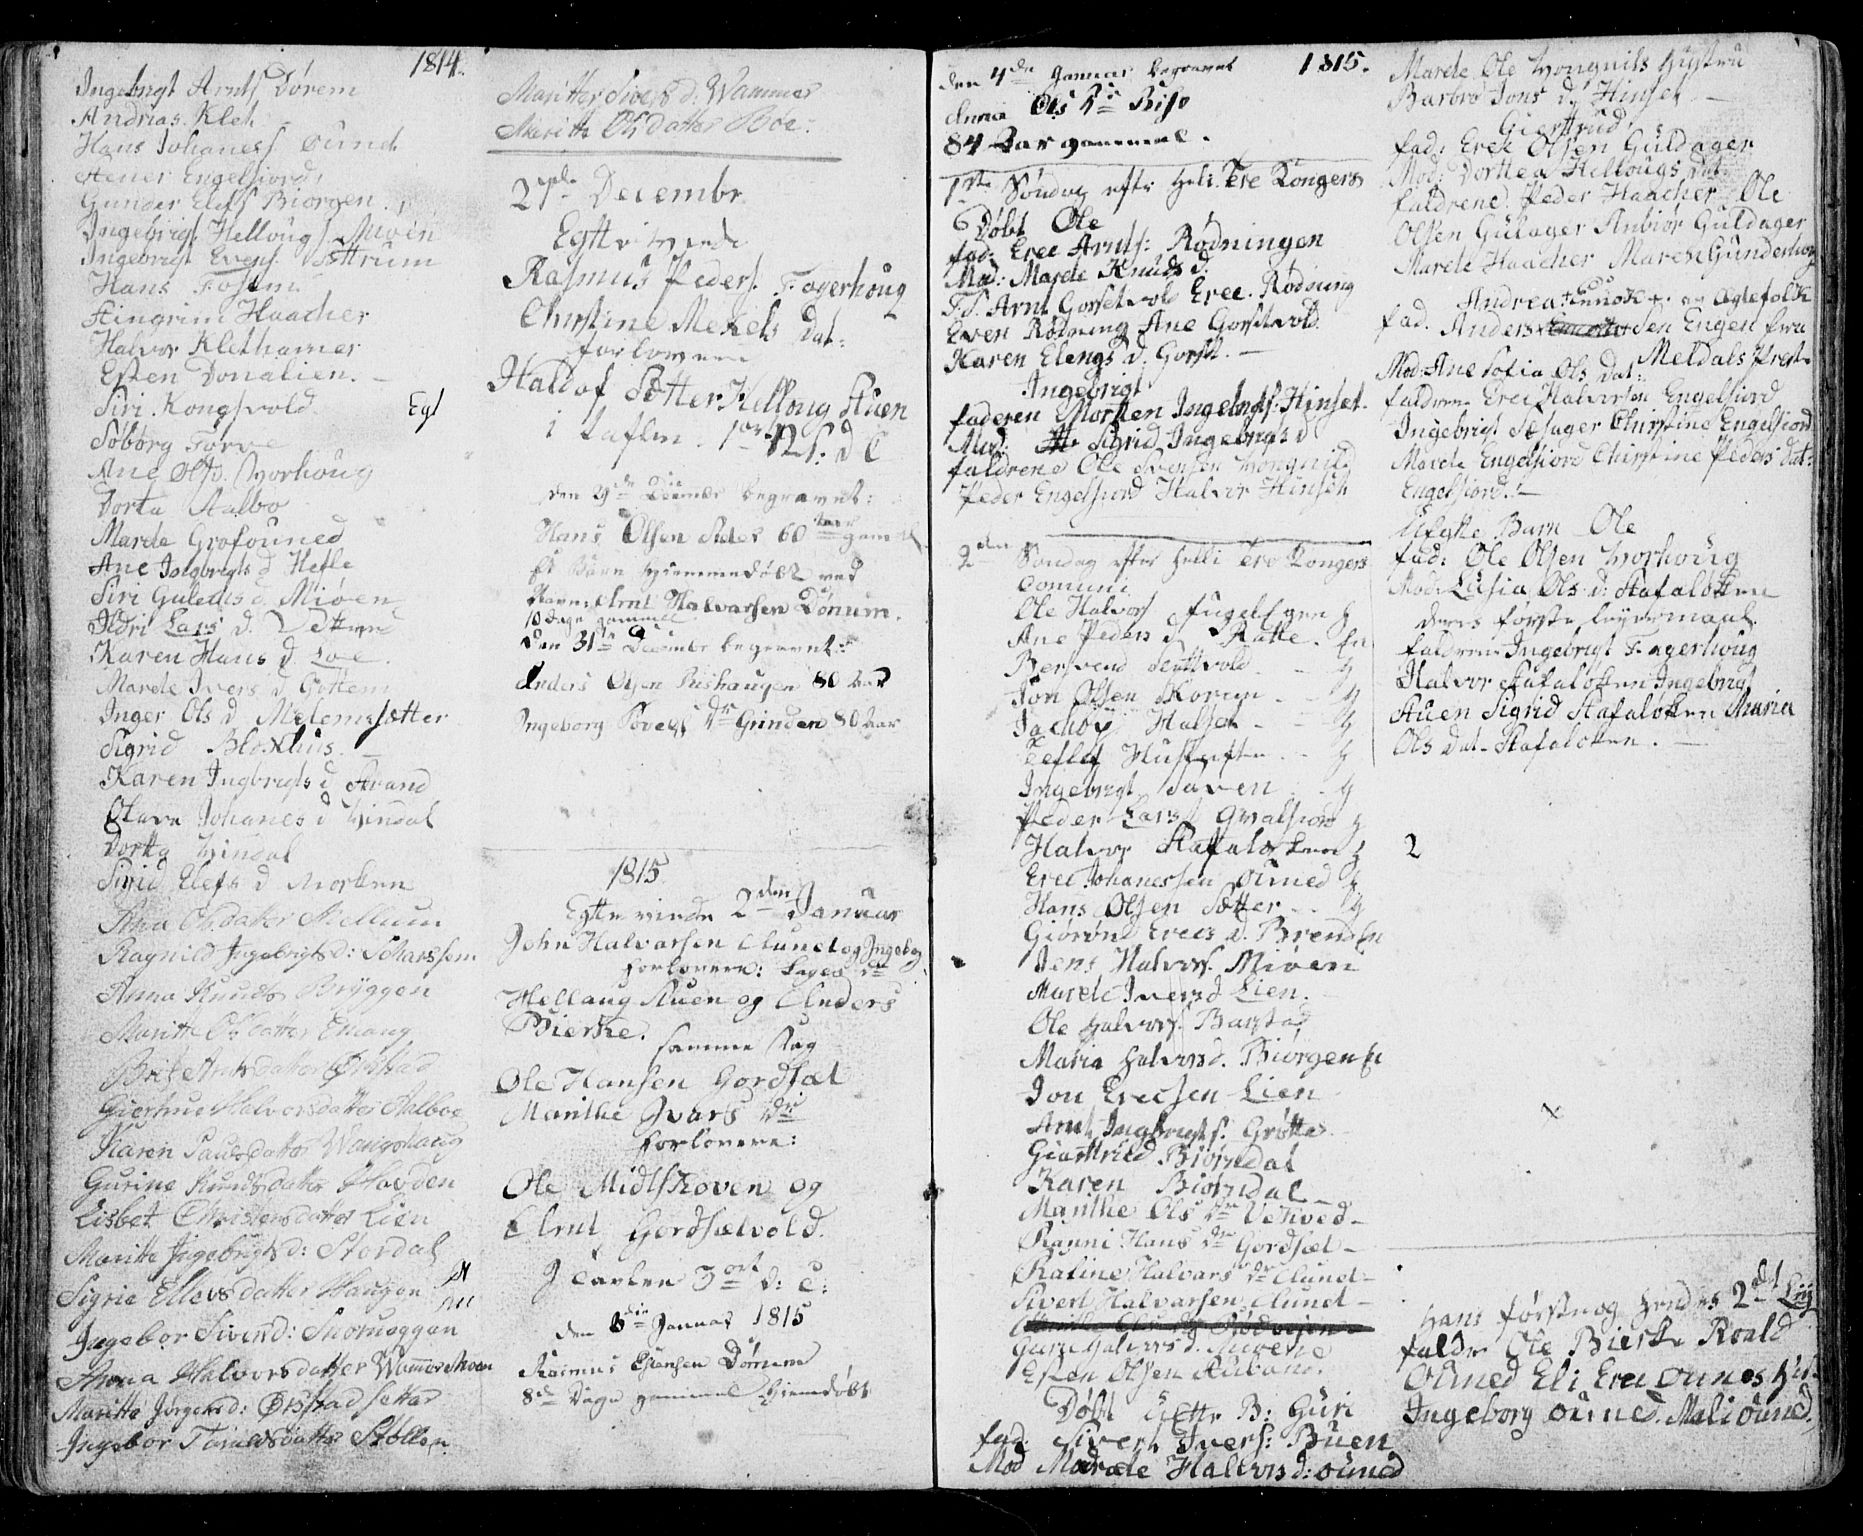 1814.
Ingebrigt Arnts Dörem
Andrias Klet
Hans Johaness ound
Stener Engelsiord
Gunder Elefs Biorgen
Ingebrigt Hellougs Miøen
Ingebrigt Evens. Søttrum
Hans Fossem
Stingrim Haacher
Halvor Klethamer
Esten Donalien. —
Siri. Kongsvold.
Soborg Torve
Ane Olsd. Worhoug
Dorta Aalbo
Marete Grofouned
Ane Ingbrigts d Hefle
Siri Guleks d. Miøen
Ildri Lars d. Vettved
Karen Hans d. Loe.
Marete Ivers d Gottem
Inger Ols d Melemsætter
Sigrid Blokhus.
Karen Ingbrigts d Strand
Olava Johanes d Vindal
Dorta Vindal
Sirid Elefs d Morken
Ana Olsdatter Mellum
Ragnild Ingebrigts d: Scharssem
Anna Knuds Bryggen
Maritte Olsdatter Emaug
Brit Arntsdatter Ørstad
Giertrue Halvorsdatter Aalboe
Karen Paulsdatter Wangshaug
Gurine Knudsdatter Hovden
Lisbet Christensdatter Lien
Maritte Ingebrigts d: Stordal
Sigrie Ellevsdatter Haugen
Ingebor Sivers d: Snoeuggen
Anna Halvorsdatter Wammer Moen
Maritte Jørgens d: Ørstadsetter
Ingebor Taralsdatter Stöllen
Egt
Maritte Sivers d: Wammer
Maritte Olsdatter Böe:
27de Decembr.
Egtteviede
Rasmus Peders. Fagerhoug
Christine Mekels Dat:
forlovere
Haldof Sætter Helloug Stuen
i taflen. 1ort 12 s: d C
den 29de Decembr begravet:
Hans Olsen Sæter 60 aar gammel
Et Barn Hiemmedøbt ved
Navn: Arnt Halvarsen Dönum.
10 Dage gammel
den 31te Decembr begravet:
Anders Olsen Rishaugen 80 Aar
Ingeborg Povels Dr Grinden 80 Aar
1815
Egtteviede 2den Januar
John Halvarsen Aunet og Ingebog
forlovere: Lages Dr
Hellaug Stuen og Anders
Bierke.
samme Dag
Ole Hansen Gordsæt
Marithe Ivars Dr
forlovere:
Ole Midtskoven og
Arnt Gordsætvold.
I Tavlen 3ort d: C:
den 3die Januar 1815
Rasmus Estensen Dönum
8te Dage gammel Hiemdøbt
1815.
den 4de Januar begravet
Anna Ols Dr Riise
84 Aar gammel.
1ste Søndag efter Hell. Tre Kongers
Døbt Ole
fad: Erec Arnts: Rødningen
Mod: Marete Knuds d.
F.S. Arnt Gorsetvold Erec. Rødning
Even Rødning Ane Gorsetvold
Karen Elengs d. Gorset. —
Ingebrigt
faderen Morten Ingebrigts: Hinset.
Mod: Sigrid Ingebrigts d
faldrene Ole Svensen Vongnild
Peder Engelsiord Halvor Hinset
2den Søndag efter Helli Tre Kongers
Comuni
Ole Halvors Fugelsgen
Ane Peders d Ratte.
Bersvend Seuttvold
Jon Olsen Korem
Jachop Halset
Detlef Hustoften
Ingebrigt Saven
Peder Lars Gvalsiord
Halvor Stafaløkken
Erec Johanessen ouned
Hans Olsen Sætter
Giørøn Erecs d. Brend
Jens Halvors. Miøen
Marete Ivers d Lien.
Ole Halvors. Barstad
Maria Halvors d. Biørgen
Jon Erecsen Lien
Arnt Ingbrigts. Grøtte
Giærttrud Biørndal
Karen Biørndal
Marithe Ols Dr Vetived
Ragni Hans Dr Gordsæt
Katine Halvars Dr Aunet
Sivert Halvarsen Aunet
Guri Halvors d. Miøene
Esten Olsen Aubane.
Døbt Egtte B: Guri
fad: Sivert Ivers: Buen
Mod Marete Halvors d: ouned
Marete Ole Vongnils Hustru
Barbro Jons d. Hinset —
Giertrud
fad: Erec Olsen Guldager
Mod: Dorttea Hellougs Dat
faldrene. Peder Haacher Ole
Olsen Gulager Anbiør Guldager
Marete Haacher Marete Gunderhoug
Andrea
fad. Anders Sen Engen fra
Meldals Prest.
Mod: Ane Sofia Ols Dat:
faldrene Erec Halvorsen Engelsiord
Ingebrigt Sæsager Christine Engelsiord
Marete Engelsiord Christine Peders Dat:
Engelsiord. —
Uegtte Barn Ole
fad: Ole Olsen Vorhoug
Mod: Lusia Ols d: Stafaløkken
deris første leyermaal.
faldrene Ingebrigt Fagerhoug
Halvor Stafaløkken Ingebrigt
Stuen Sigrid Stafaløkken Maria
Ols Dat. Stafaløkken. —
2
Hans første og hendes 2det Leÿ
faldr Ole Bierke Roald
Ouned Eli Erec ounes Hu
Ingeborg ouned. Mali ouned.